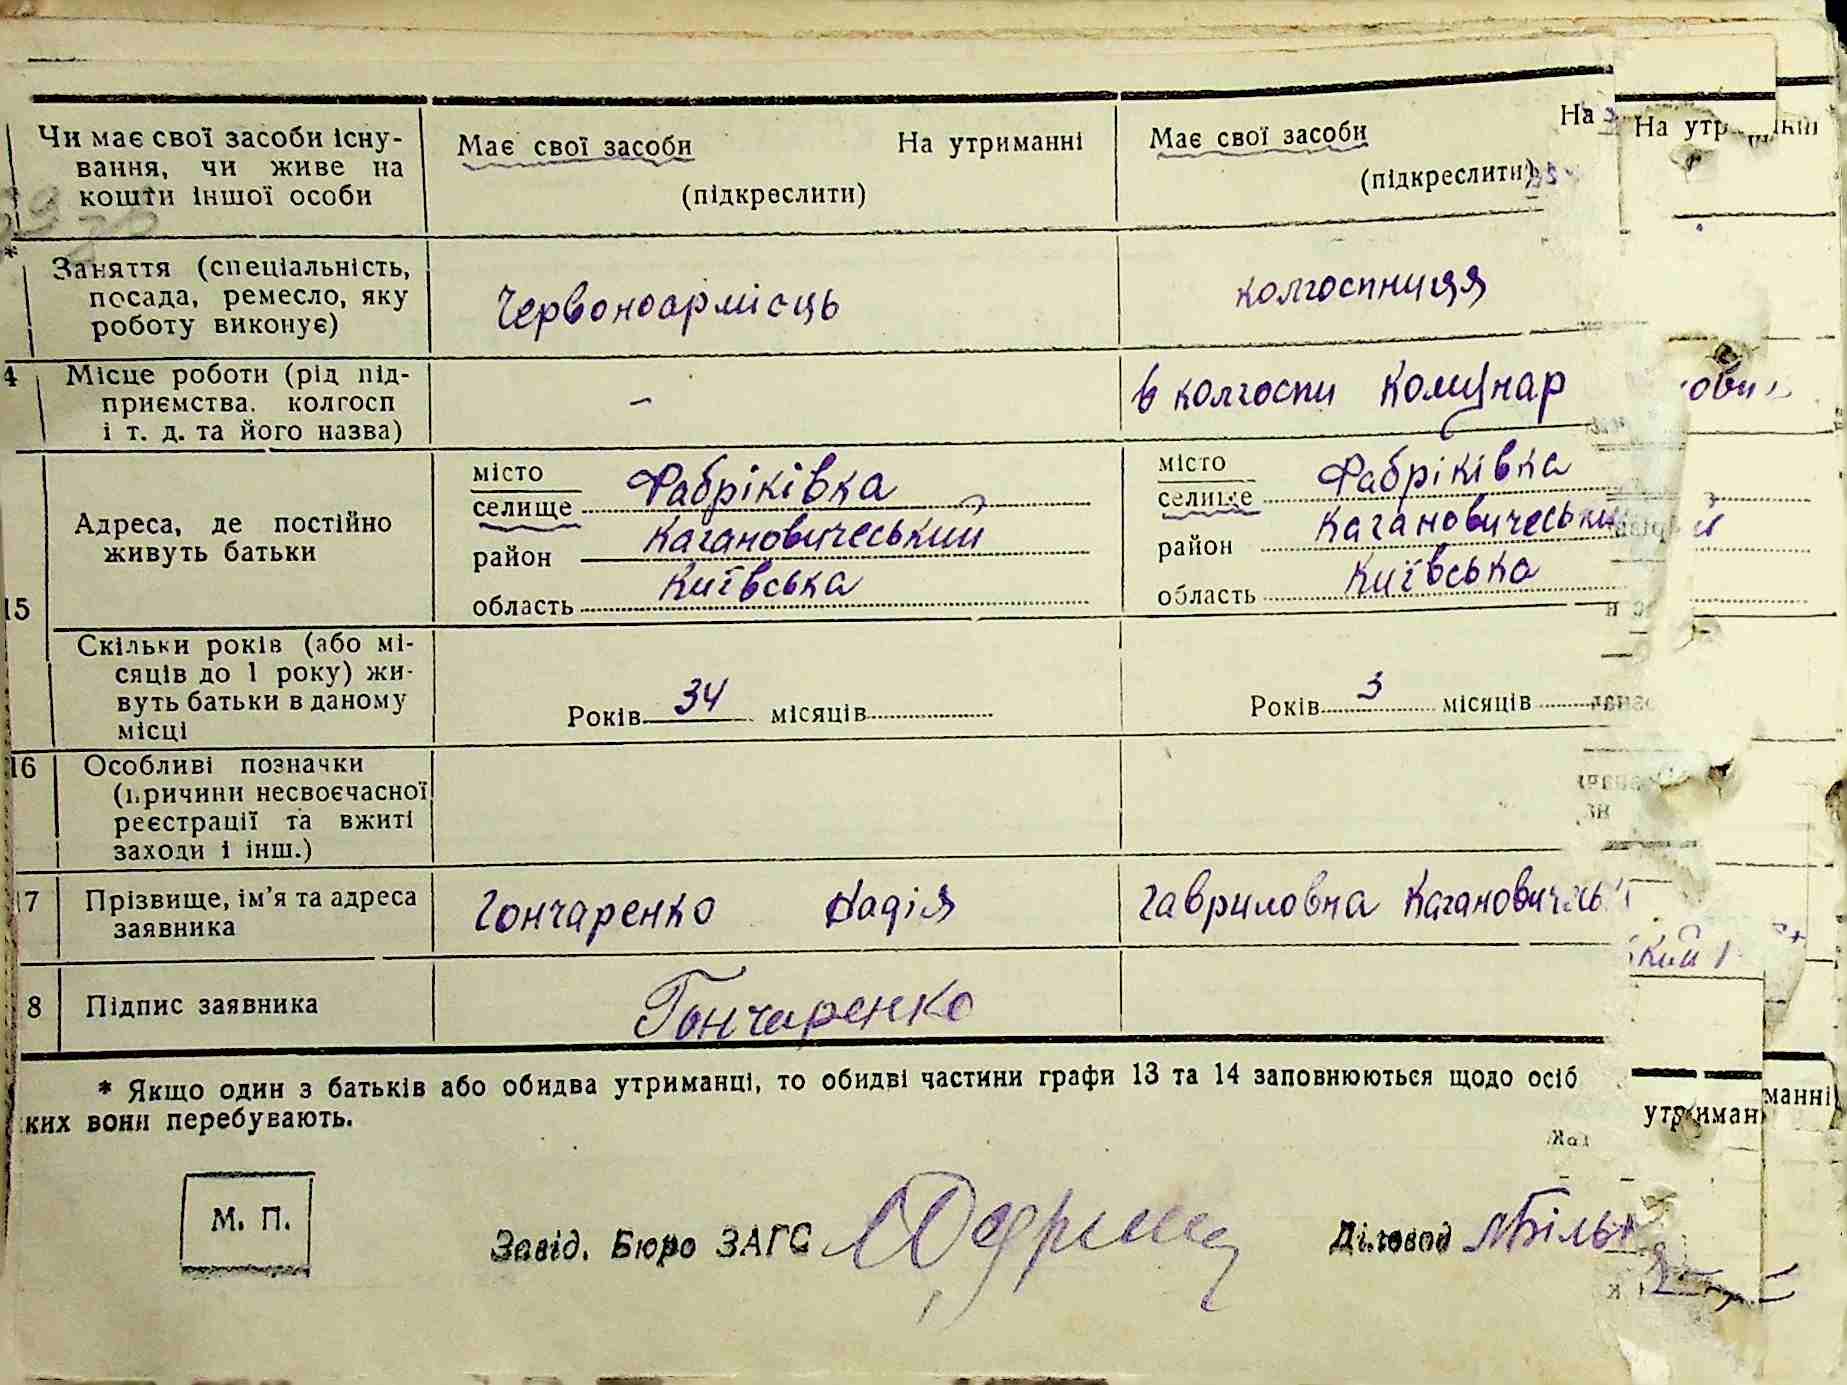 Чи має свої засоби існу-
вання, чи живе на
кошти іншої особи
Має свої засоби На утриманні
(підкреслити)
Має свої засоби На
(підкреслити)
На
*
Заняття (спеціальність,
посада, ремесло, яку
роботу виконує)
Червоноармієць
колгоспниця
4
Місце роботи (рід під-
приємства, колгосп
і т. д. та його назва)
–
в колгоспи Комунар
15
Адреса, де постійно
живуть батьки
місто
селище Фабріківка
район Кагановичеський
область Київська
місто
селище Фабріківка
район Кагановичеський
область Київська
Скільки років (або мі-
сяців до 1 року) жи-
вуть батьки в даному
місці
Років 34 місяців
Років 3 місяців
16
Особливі позначки
(причини несвоєчасної
реєстрації та вжиті
заходи і інш.)
17
Прізвище, ім'я та адреса
заявника
Гончаренко Надія Гавриловна
8
Підпис заявника
Гончаренко
* Якщо один з батьків або обидва утриманці, то обидві частини графи 13 та 14 заповнюються щодо осіб
ких вони перебувають.
манні
утриман
М. П.
Завід. Бюро ЗАГС
Діловод